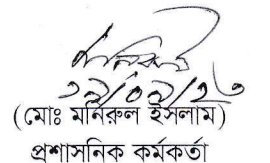 (মোঃ মনিরুল ইসলাম)
প্রশাসনিক কর্মকর্তা